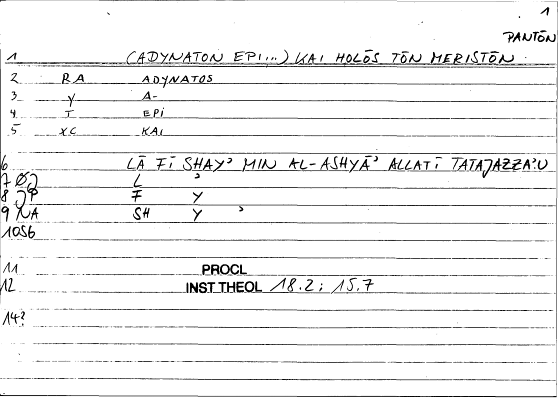 1
PANTŌN
1 (ADYNATON EPI...) KAI HOLŌS TŌN MERISTŌN
2 RA ADYNATOS
3 Y A-
4 T EPI
5 XC KAI
6 LĀ FĪ SHAYʾ MIN AL-ASHYĀʾ ALLATĪ TATAJAZZAʾU
7 ØJ L ʾ
8 JP F Y
9 NA SH Y ʾ
10S6
11 PROCL
12 INST THEOL 18.2; 15.7
14?